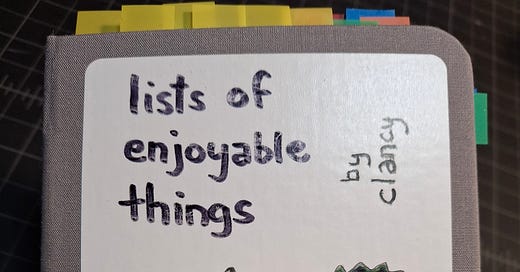 lists of
enjoyable
things
by
clancy